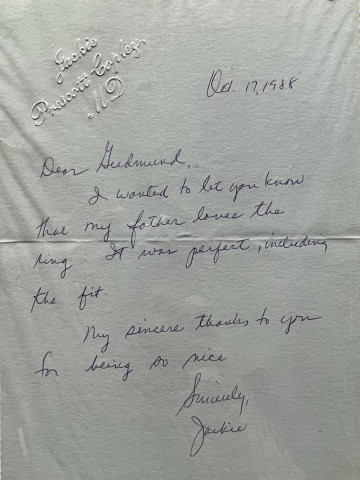 Jackie
Prescott Corley,
MD
Oct. 17, 1988
Dear Gudmund,
I wanted to let you know
that my father loves the
ring. It was perfect, including
the fit.
My sincere thanks to you
for being so nice
Sincerely,
Jackie